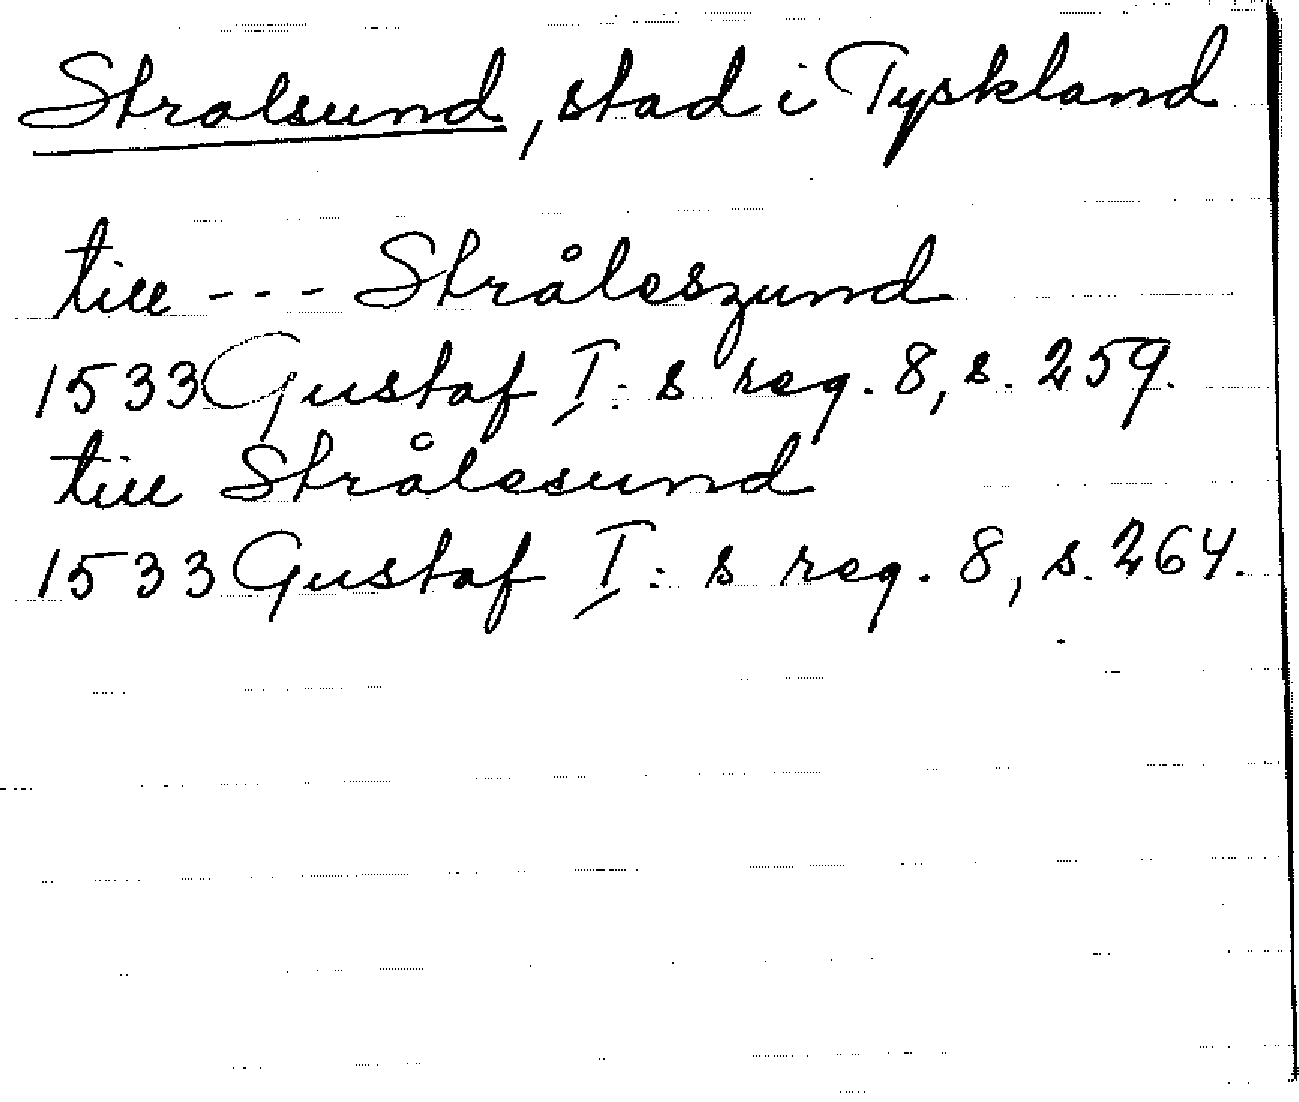 Stralsund, stad i Tyskland
till --- Stråleszund
1533 Gustaf I:s reg. 8, s. 259.
till Strålesund
1533 Gustaf I:s reg. 8, s. 264.